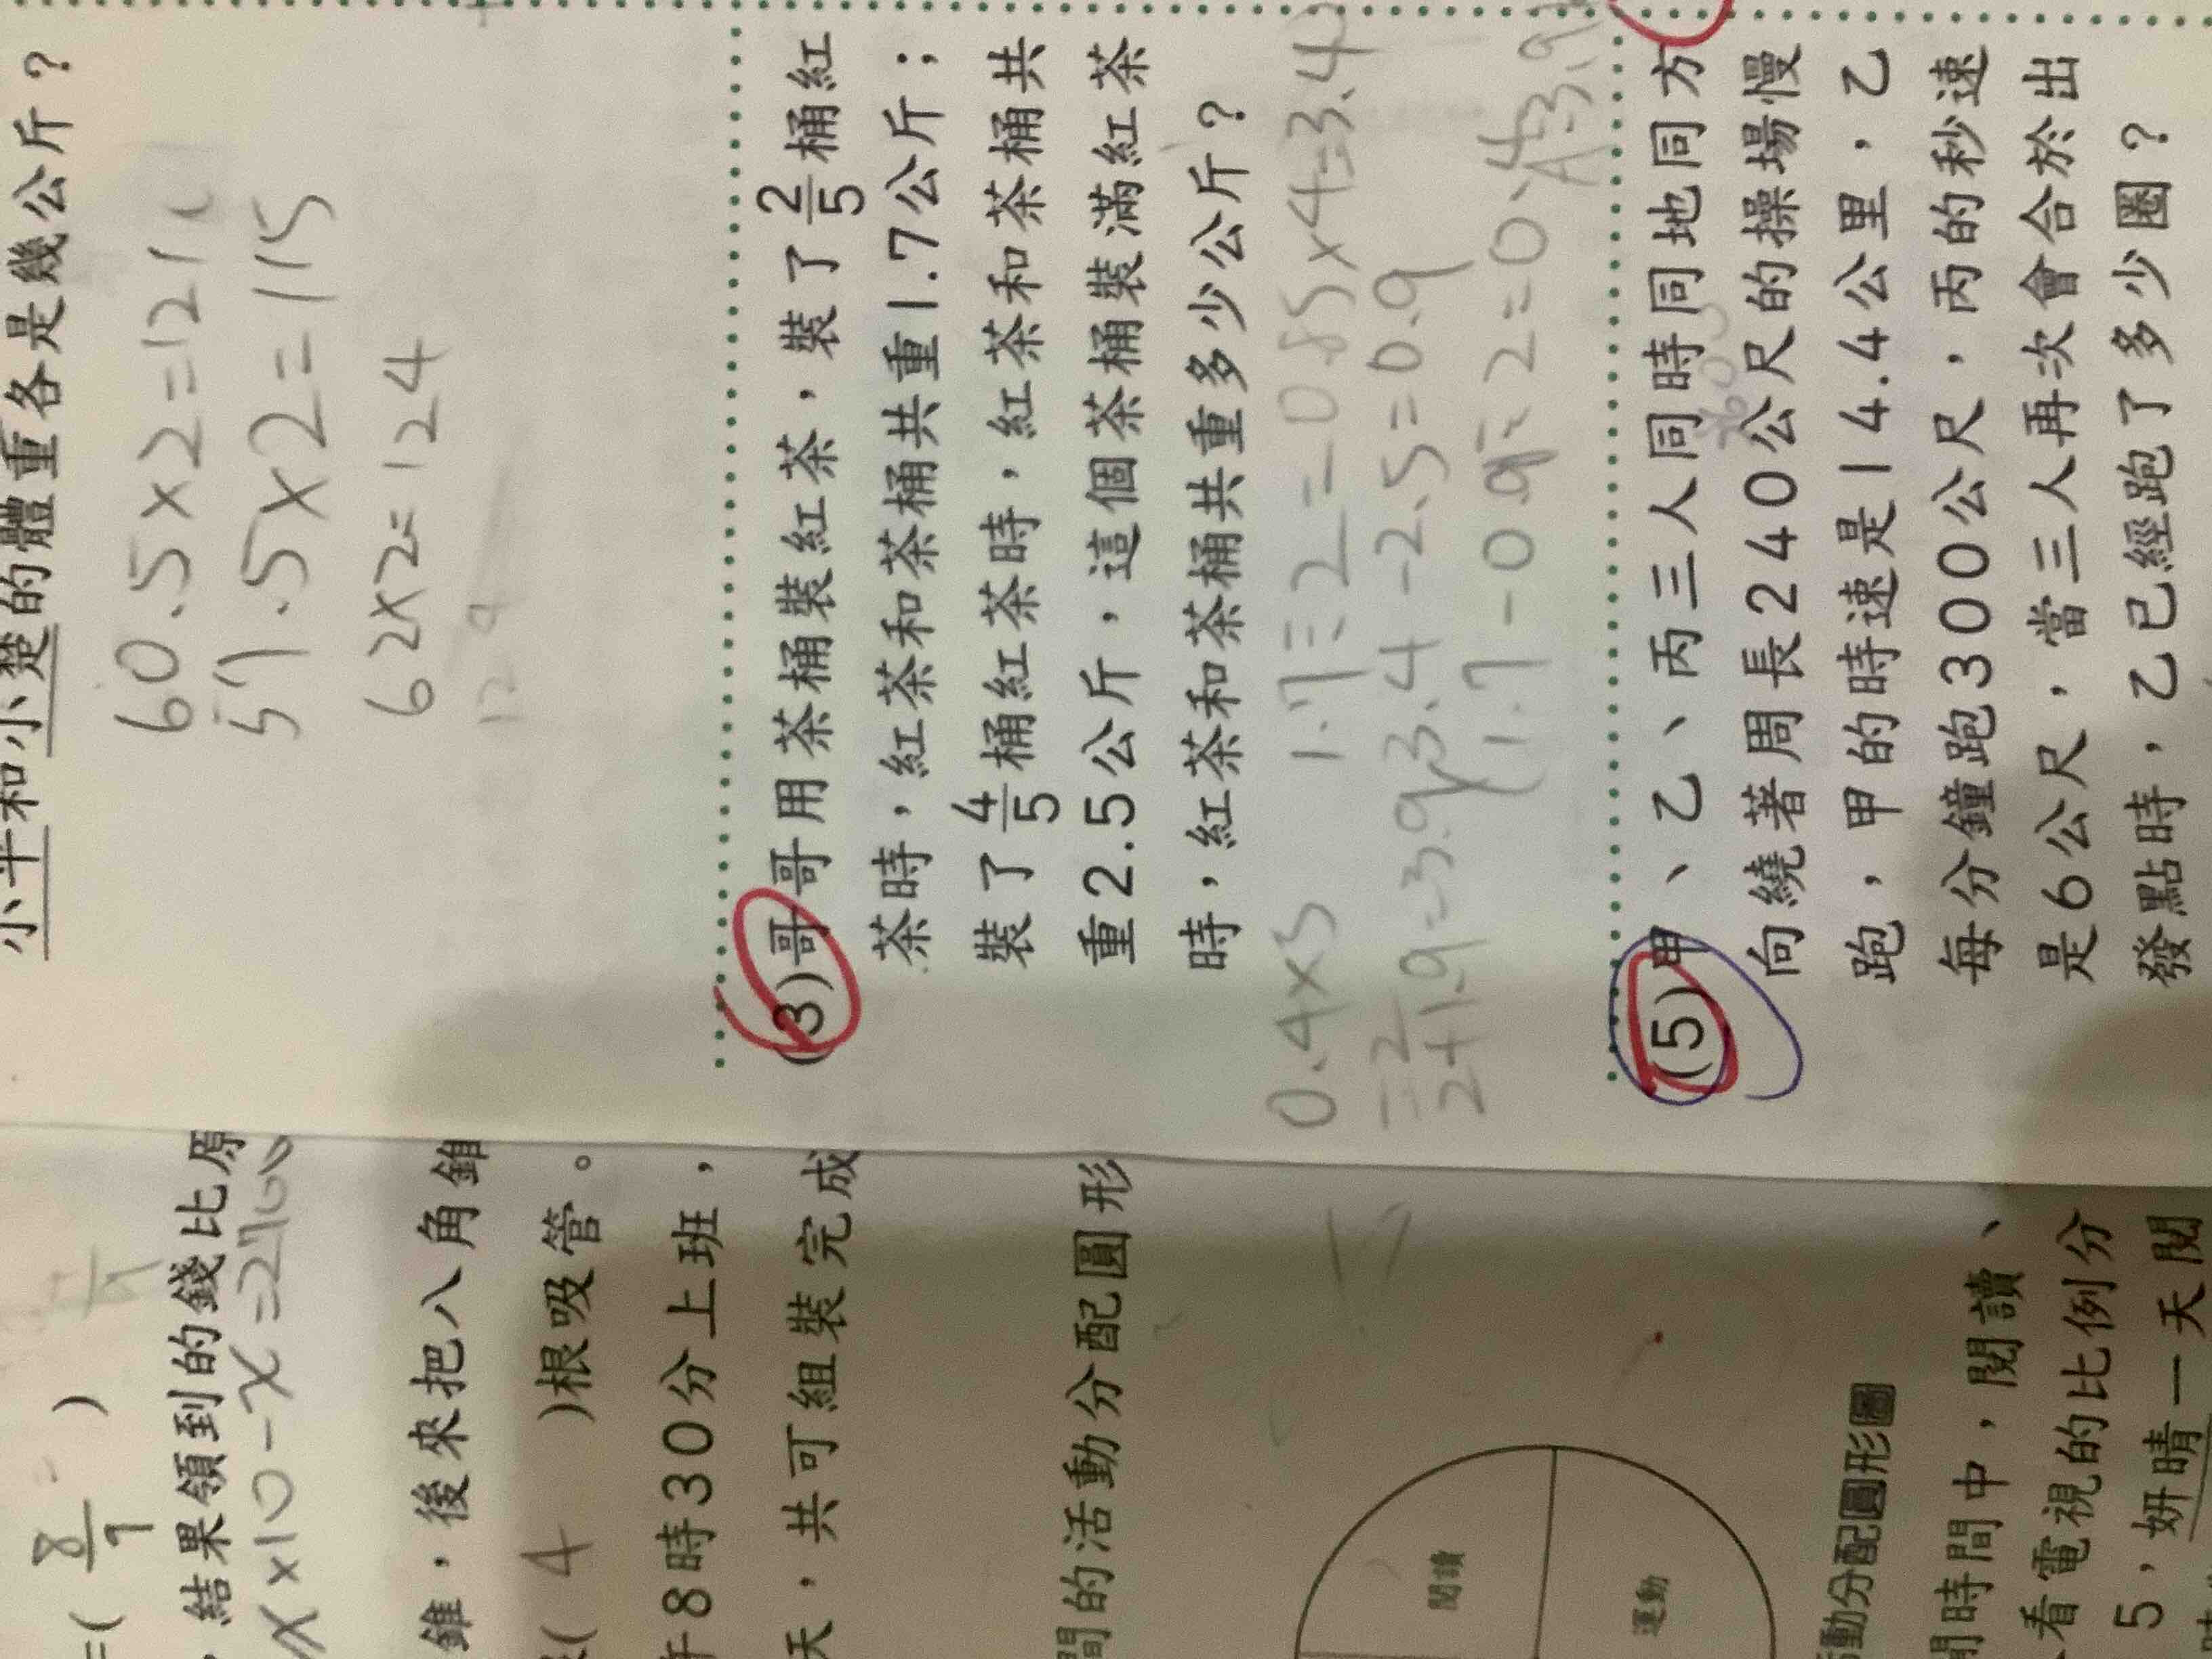 小千和小楚的體重各是幾公斤？
60.5×2=121
57.5×2=115
62×2=124
(3)哥哥用茶桶裝紅茶，裝了2/5桶紅
茶時，紅茶和茶桶共重1.7公斤；
裝了4/5桶紅茶時，紅茶和茶桶共
重2.5公斤，這個茶桶裝滿紅茶
時，紅茶和茶桶共重多少公斤？
0.4×5 1.7÷2=0.85×4=3.4
=2 3.4-2.5=0.9
2+1.9=3.9 (1.7-0.9)÷2=0.4
A:3.9
(5)甲、乙、丙三人同時同地同方
向繞著周長240公尺的操場慢
跑，甲的時速是14.4公里，乙
每分鐘跑300公尺，丙的秒速
是6公尺，當三人再次會合於出
發點時，乙已經跑了多少圈？
=( 8/7 )
，結果領到的錢比原
x×10-x=2700
錐，後來把八角錐
( 4 )根吸管。
午8時30分上班，
天，共可組裝完成
間的活動分配圓形
閱讀
運動
動分配圓形圖
閒時間中，閱讀、
看電視的比例分
5，妍晴一天閱